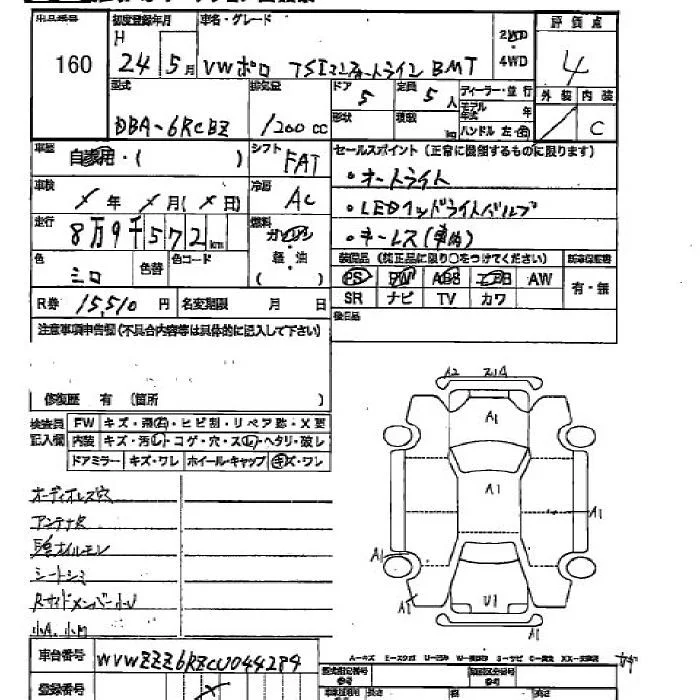 出品番号 初度登録年月 車名・グレード 2WD 評価点
H
160 24年 5月 VWポロ TSIコンフォートライン BMT 4WD 4
型式 排気量 ドア 定員 ディーラー・並行 外装 内装
5 5人 モデル年式 年
DBA-6RCBZ 1200 cc 形状 積載 kg ハンドル 左・右 C
車歴 自家用・( ) シフト FAT セールスポイント (正常に機能するものに限ります)
・オートライト
車検 年 月( 日) 冷房 AC ・LEDヘッドライトバルブ
走行 8万9千572km 燃料 ガソリン ・キーレス(車両)
色 色替 色コード 軽・油 装備品 (純正品に限り○をつけてください) 新車保証書
シロ ( ) PS PW ABS エアB AW 有・無
R券 15,510円 名変期限 月 日 SR ナビ TV カワ
注意事項申告欄(不具合内容等は具体的に記入して下さい) 後日品
修復歴 有 (箇所 )
検査員 FW キズ・飛石・ヒビ割・リペア跡・X要
記入欄 内装 キズ・汚レ・コゲ・穴・スレ・ヘタリ・破レ
ドアミラー キズ・ワレ ホイール・キャップ キズ・ワレ
オーディオレス穴
アンテナ欠
シートシミ
Rサイドメンバー小U
小A、小U
A2
A1
A1
A1
A1
A1
U1
A1
車台番号 WVWZZZ6RZCU044284
A-キズ
登録番号
参考
参考